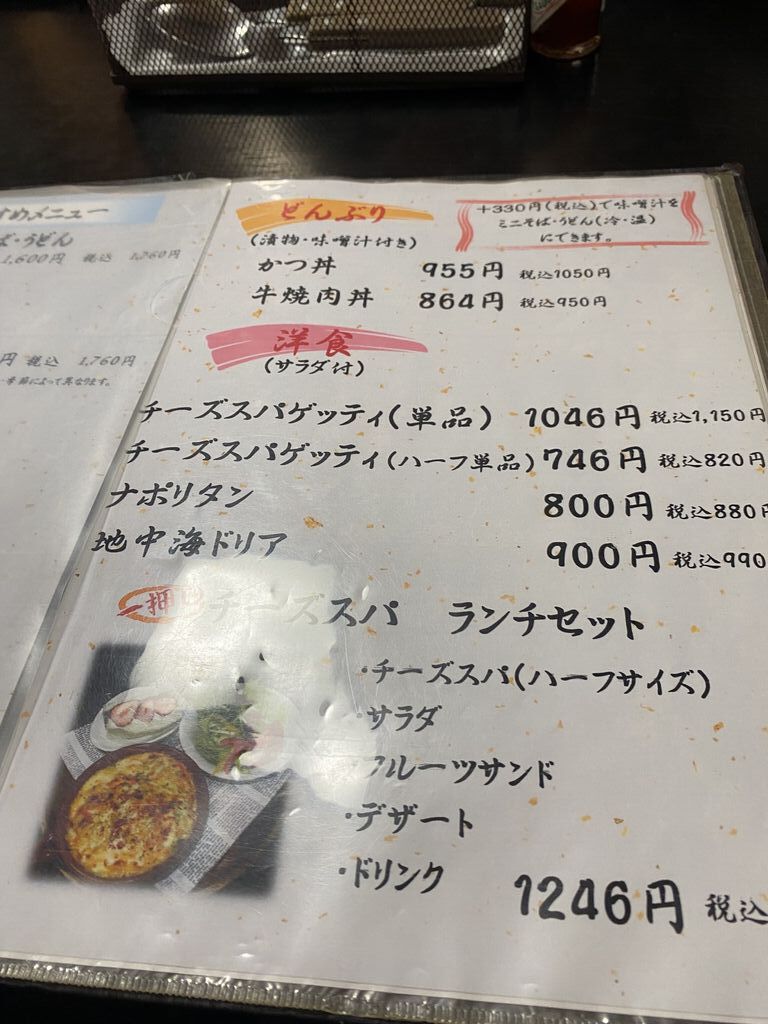 すめメニュー
ば・うどん
1,600円 税込 1,760円
円 税込 1,760円
季節によって異なります。
どんぶり
(漬物・味噌汁付き)
+330円(税込)で味噌汁を
ミニそば・うどん(冷・温)
にできます。
かつ丼 955円 税込1050円
牛焼肉丼 864円 税込950円
洋食
(サラダ付)
チーズスパゲッティ(単品) 1046円 税込1,150円
チーズスパゲッティ(ハーフ単品) 746円 税込820円
ナポリタン 800円 税込880円
地中海ドリア 900円 税込990
一押し チーズスパ ランチセット
・チーズスパ(ハーフサイズ)
・サラダ
・フルーツサンド
・デザート
・ドリンク
1246円 税込